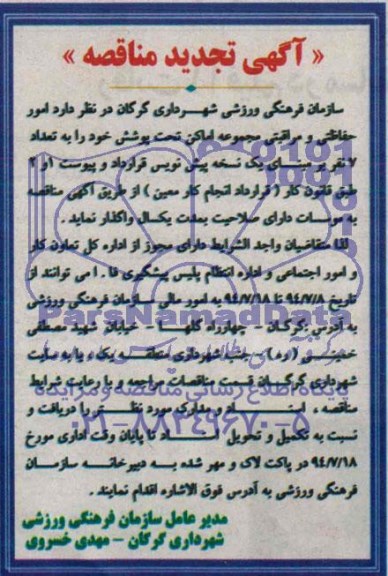 « آگهی تجدید مناقصه »
سازمان فرهنگی ورزشی شهرداری گرگان در نظر دارد امور
حفاظتی و مراقبتی مجموعه اماکن تحت پوشش خود را به تعداد
۷ نفر بر مبنای یک نسخه پیش نویس قرارداد و پیوست ۱و ۲
طبق قانون کار ( قرارداد انجام کار معین ) از طریق آگهی مناقصه
به موسسات دارای صلاحیت بمدت یکسال واگذار نماید .
لذا متقاضیان واجد الشرایط دارای مجوز از اداره کل تعاون کار
و امور اجتماعی و اداره انتظام پلیس پیشگیری فا . ا می توانند از
تاریخ ۹۴/۷/۸ تا ۹۴/۷/۱۸ به امور مالی سازمان فرهنگی ورزشی
به آدرس : گرگان - چهارراه گلها - خیابان شهید مصطفی
خمینی (ره) جنب شهرداری منطقه یک ، یا به سایت
شهرداری گرگان قسمت مناقصات مراجعه و با رعایت شرایط
مناقصه ، اسناد و مدارک مورد نظر را دریافت و
نسبت به تکمیل و تحویل اسناد تا پایان وقت اداری مورخ
۹۴/۷/۱۸ در پاکت لاک و مهر شده به دبیرخانه سازمان
فرهنگی ورزشی به آدرس فوق الاشاره اقدام نمایند .
مدیر عامل سازمان فرهنگی ورزشی
شهرداری گرگان - مهدی خسروی
ParsNamadData
پایگاه اطلاع رسانی مناقصه و مزایده
۰۲۱-۸۸۳۴۹۶۷۰-۵